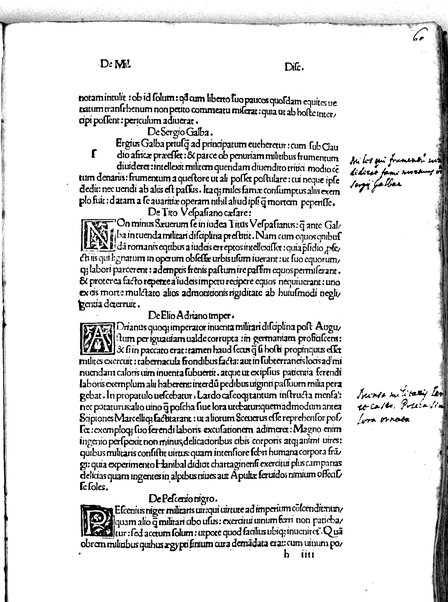 60
De Mil. Disc.
notam intulit: ob id solum: qđ cum liberto suo paucos quosdam equites ue
natum transrhenum non petito commeatu miserat: quia ut ab hoste inter
cipi possent: periculum adiuerat.
De Sergio Galba.
f Ergius Galba priusq̃ ad principatum eueheretur: cum sub Clau
dio africæ præesset: & parce ob penuriam militibus frumentum
diuideret: intellexit militem quendam diuendito tritici modio cē
tum denariis: frumentum a quæstore ut ali posset postulare: cui neque ipse
dedit: nec uendi ab aliis est passus. Itaq; miles fame consumptus aliis exem
plo fuit: datam a se auaritiæ operam nihil aliud ipsi q̃ mortem peperisse.
De Tito Vespasiano cæsare:
NOn minus Seuerum se in iudea Titus Vespasianus: q̃ ante Gal
ba in inuenda militari disciplina præstitit. Nam cum equos quibus
dã romanis equitibus a iudeis ereptos intellexisset: quia præsidio, p
fectis qui lignatum in operum obsesse urbis usum iuerant: ut suo equorum,
q; labori parcerent: ademptis frenis pastum ire passim equos permiserant.
& proterea facto repente a iudeis impetu recipere equos nequiuerant: uno
ex eis morte mulctato alios admonitionis rigiditate ab huiusmodi negli
gentia deterruit.
De Elio Adriano imper.
ADrianus quoq; imperator inuenta militari disciplina post Augu
stum per iguauiam ualde corrupta: in germaniam proficiscens:
& si in paccato erat: tamen haud secus q̃ si hosti propinquus esset
milites exercuit: tabernacula frondibus facta: aut in subterraneis locis ad mi
nuendam caloris uim inuenta subuertit. atque ut existis patientia ferendi
laboris exemplum alii haberent: interdũ pedibus uiginti passuum milia pera
gebat. In propatulo uescebatur. Lardo caseoq; tantum instructa mensa:
nec potaturus: alio uino q̃ poscha siue lora utebatur: quemadmodum ante
Scipiones Marcelliq; factitarant: ut a illorum & ceteros uti esse referret pos
set: exemploq; suo ferendi laboris excusationem adimeret: Magno enim
ingenio perspexit non minus, delicatioribus cibis corporis atq; animi uires:
quibus militaris consistit uirtus: quam intensiore sebri humana corpora frã
gi: quia experimento Hanibal didicit chartaginensi exercitui plus campanas
delicias quam ingentes in alpibus niues aut Apuliæ feruidos nimium offecis
se soles.
De Pescenio nigro.
PEscenius niger militaris uir: qui uirtute ad imperium cõscendit enim,
quam alio q̃ militari cibo usus: exercitui uinum ferri non patieba
tur: sed acetum solum: utpote quod facilius ubiq; inueniret. Quã
obrem militibus quibus ægypti finium cura demãdata erat: cum uinum po,
h iiii
Sergij Galbae
lora ornata